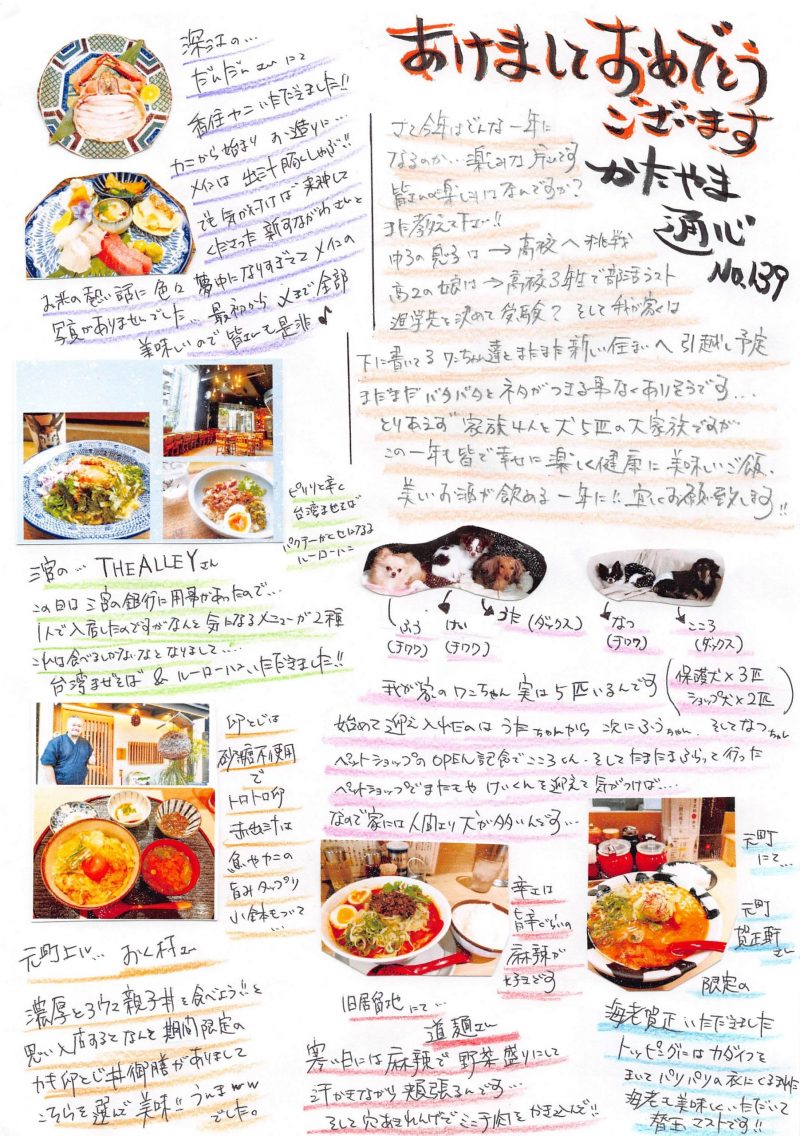 あけましておめでとう
ございます
かたやま
通心
No.139
さて今年はどんな一年に
なるのか…楽しみな
皆さんの楽しみはなんですか?
また教えて下さい!!
ゆうの息子は→高校へ挑戦
高2の娘は→高校3年生で部活ラスト
進学先を決めて受験? そして我が家は
下に書いてるワンちゃん達とまたまた新しい住まいへ引越し予定
まだまだバタバタとネタがつきる事なくありそうです…
とりあえず家族4人と犬5匹の大家族ですが
この一年も皆で幸せに楽しく健康に美味しいご飯、
美しいお酒が飲める一年に!! 宜しくお願い致します!!
深江の…
だんだんさんにて
香住カニいただきました!!
カニから始まりお造りに…
メインは出汁豚しゃぶ!!
でも気が付けば来神して
くださった新すながわさんと
お米の熱い話に色々夢中になりすぎててメインの
写真がありませんでした… 最初から〆まで全部
美味しいので皆さんも是非♪
ピリリと辛く
台湾まぜそば
パクチーがとなる
ルーローハン
三宮の… THE ALLEYさん
この日は三宮の銀行に用事があったので…
1人で入店したのですがなんと気になるメニューが2種
これは食べるしかないなとなりまして…
台湾まぜそば & ルーローハンいただきました!!
ふう
(チワワ)
けい
(チワワ)
うた(ダックス)
なつ
(チワワ)
こころ
(ダックス)
我が家のワンちゃん実は5匹いるんです
(保護犬×3匹
ショップ犬×2匹)
始めて迎え入れたのはうたちゃんから 次にふうちゃん、そしてなつちゃん
ペットショップのOPEN記念でこころくん、そしてたまたまふらっと行った
ペットショップでまたもや けいくんを迎えて気がつけば…
なので家には人間より犬が多いんです…
卵とじは
砂糖不使用
で
トロトロ卵
赤出汁は
魚やカニの
旨みタップリ
小鉢もついて
…
元町上ル… おく村さん
濃厚とろウマ親子丼を食べよう!!と
思い入店するとなんと期間限定の
カキ卵とじ丼御膳がありまして
こちらを選んで美味!! うんまww
でした。
辛さは
旨辛ぐらいの
麻辣が
好きです
旧居留地にて…
道麺さん
寒い日には麻辣で野菜盛りにして
汗かきながら頬張るんです…
そして穴あきれんげでミンチ肉をかき込んで!!
元町
にて…
元町
賀正軒
さん
限定の
海老賀正いただきました
トッピングにはカダイフを
まいてパリパリの衣に
海老も美味しくいただいて
替玉マストです!!